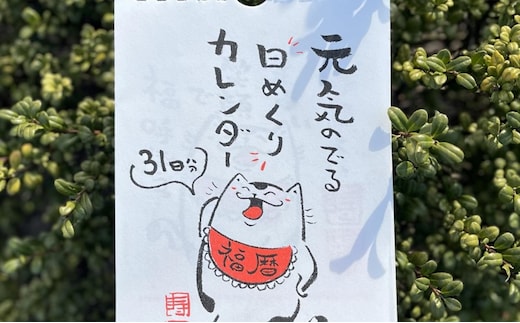 元気のでる
日めくり
カレンダー
31日分
福暦